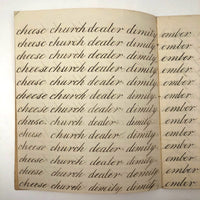 cheese church dealer dimity ember
cheese church dealer dimity. ember
cheese church dealer dimity. ember
cheese church dealer dimity. ember
cheese church dealer dimity. ember
cheese church dealer dimity. ember
cheese church dealer dimity. ember
cheese church dealer dimity. ember
church dealer dimity. ember
cheese church dealer dimity. ember
church dealer dimity. ember
cheese church dealer dimity. ember
cheese church dealer dimity. ember
cheese church dimity, dimity. ember